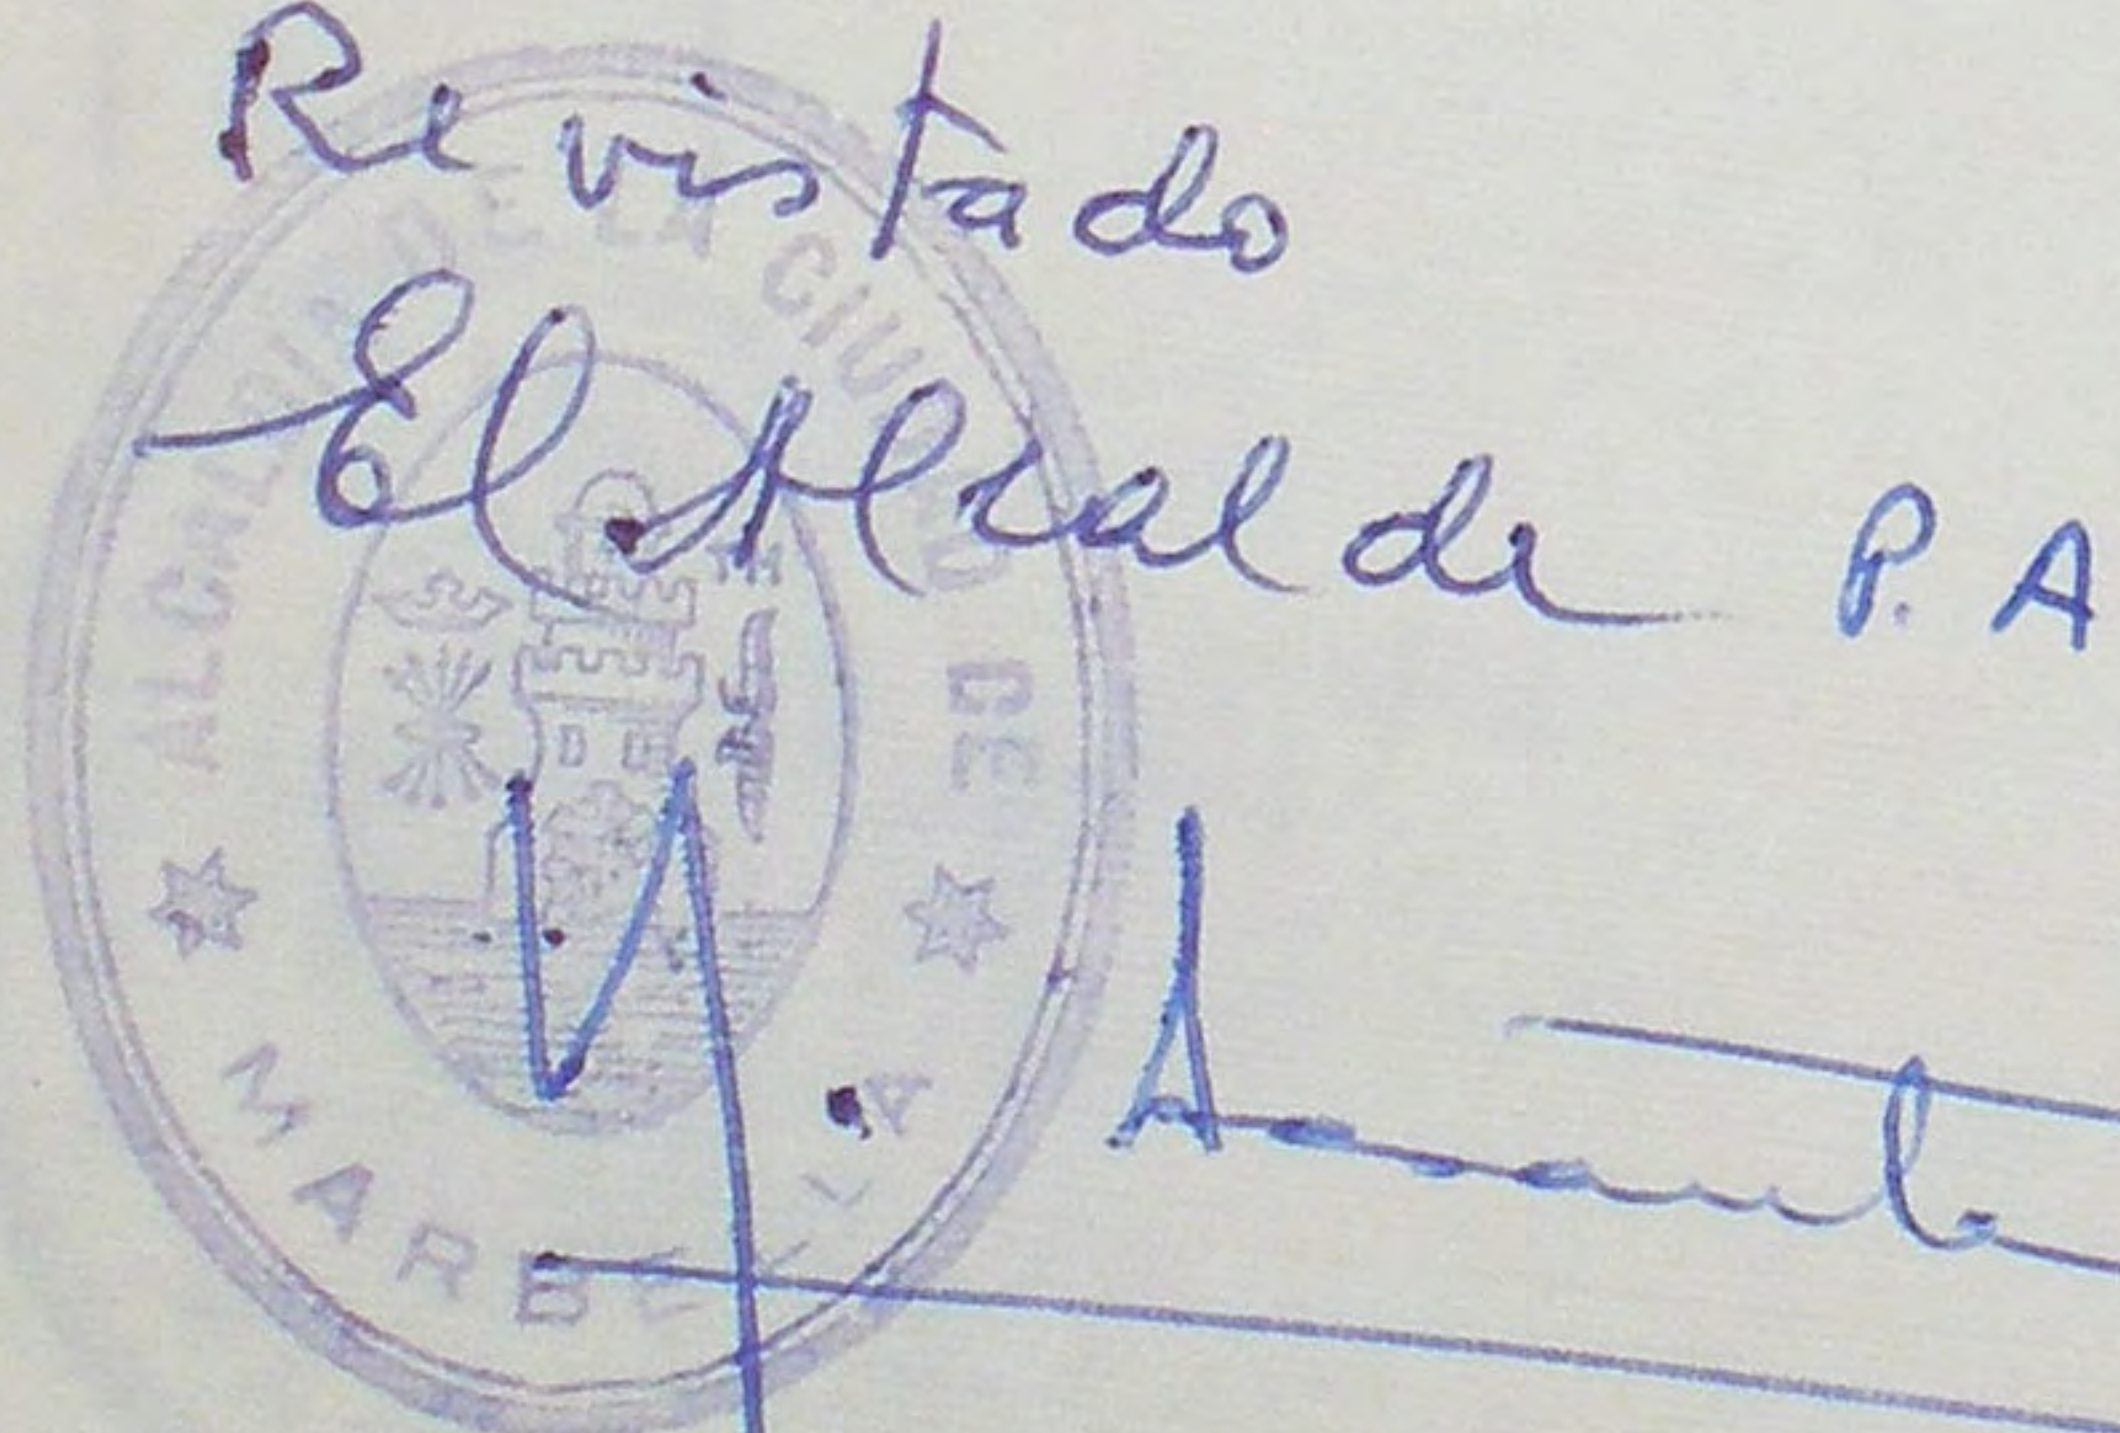 Revistado
El Alcalde P. A
ALCALDIA DE LA CIUDAD DE
MARBELLA